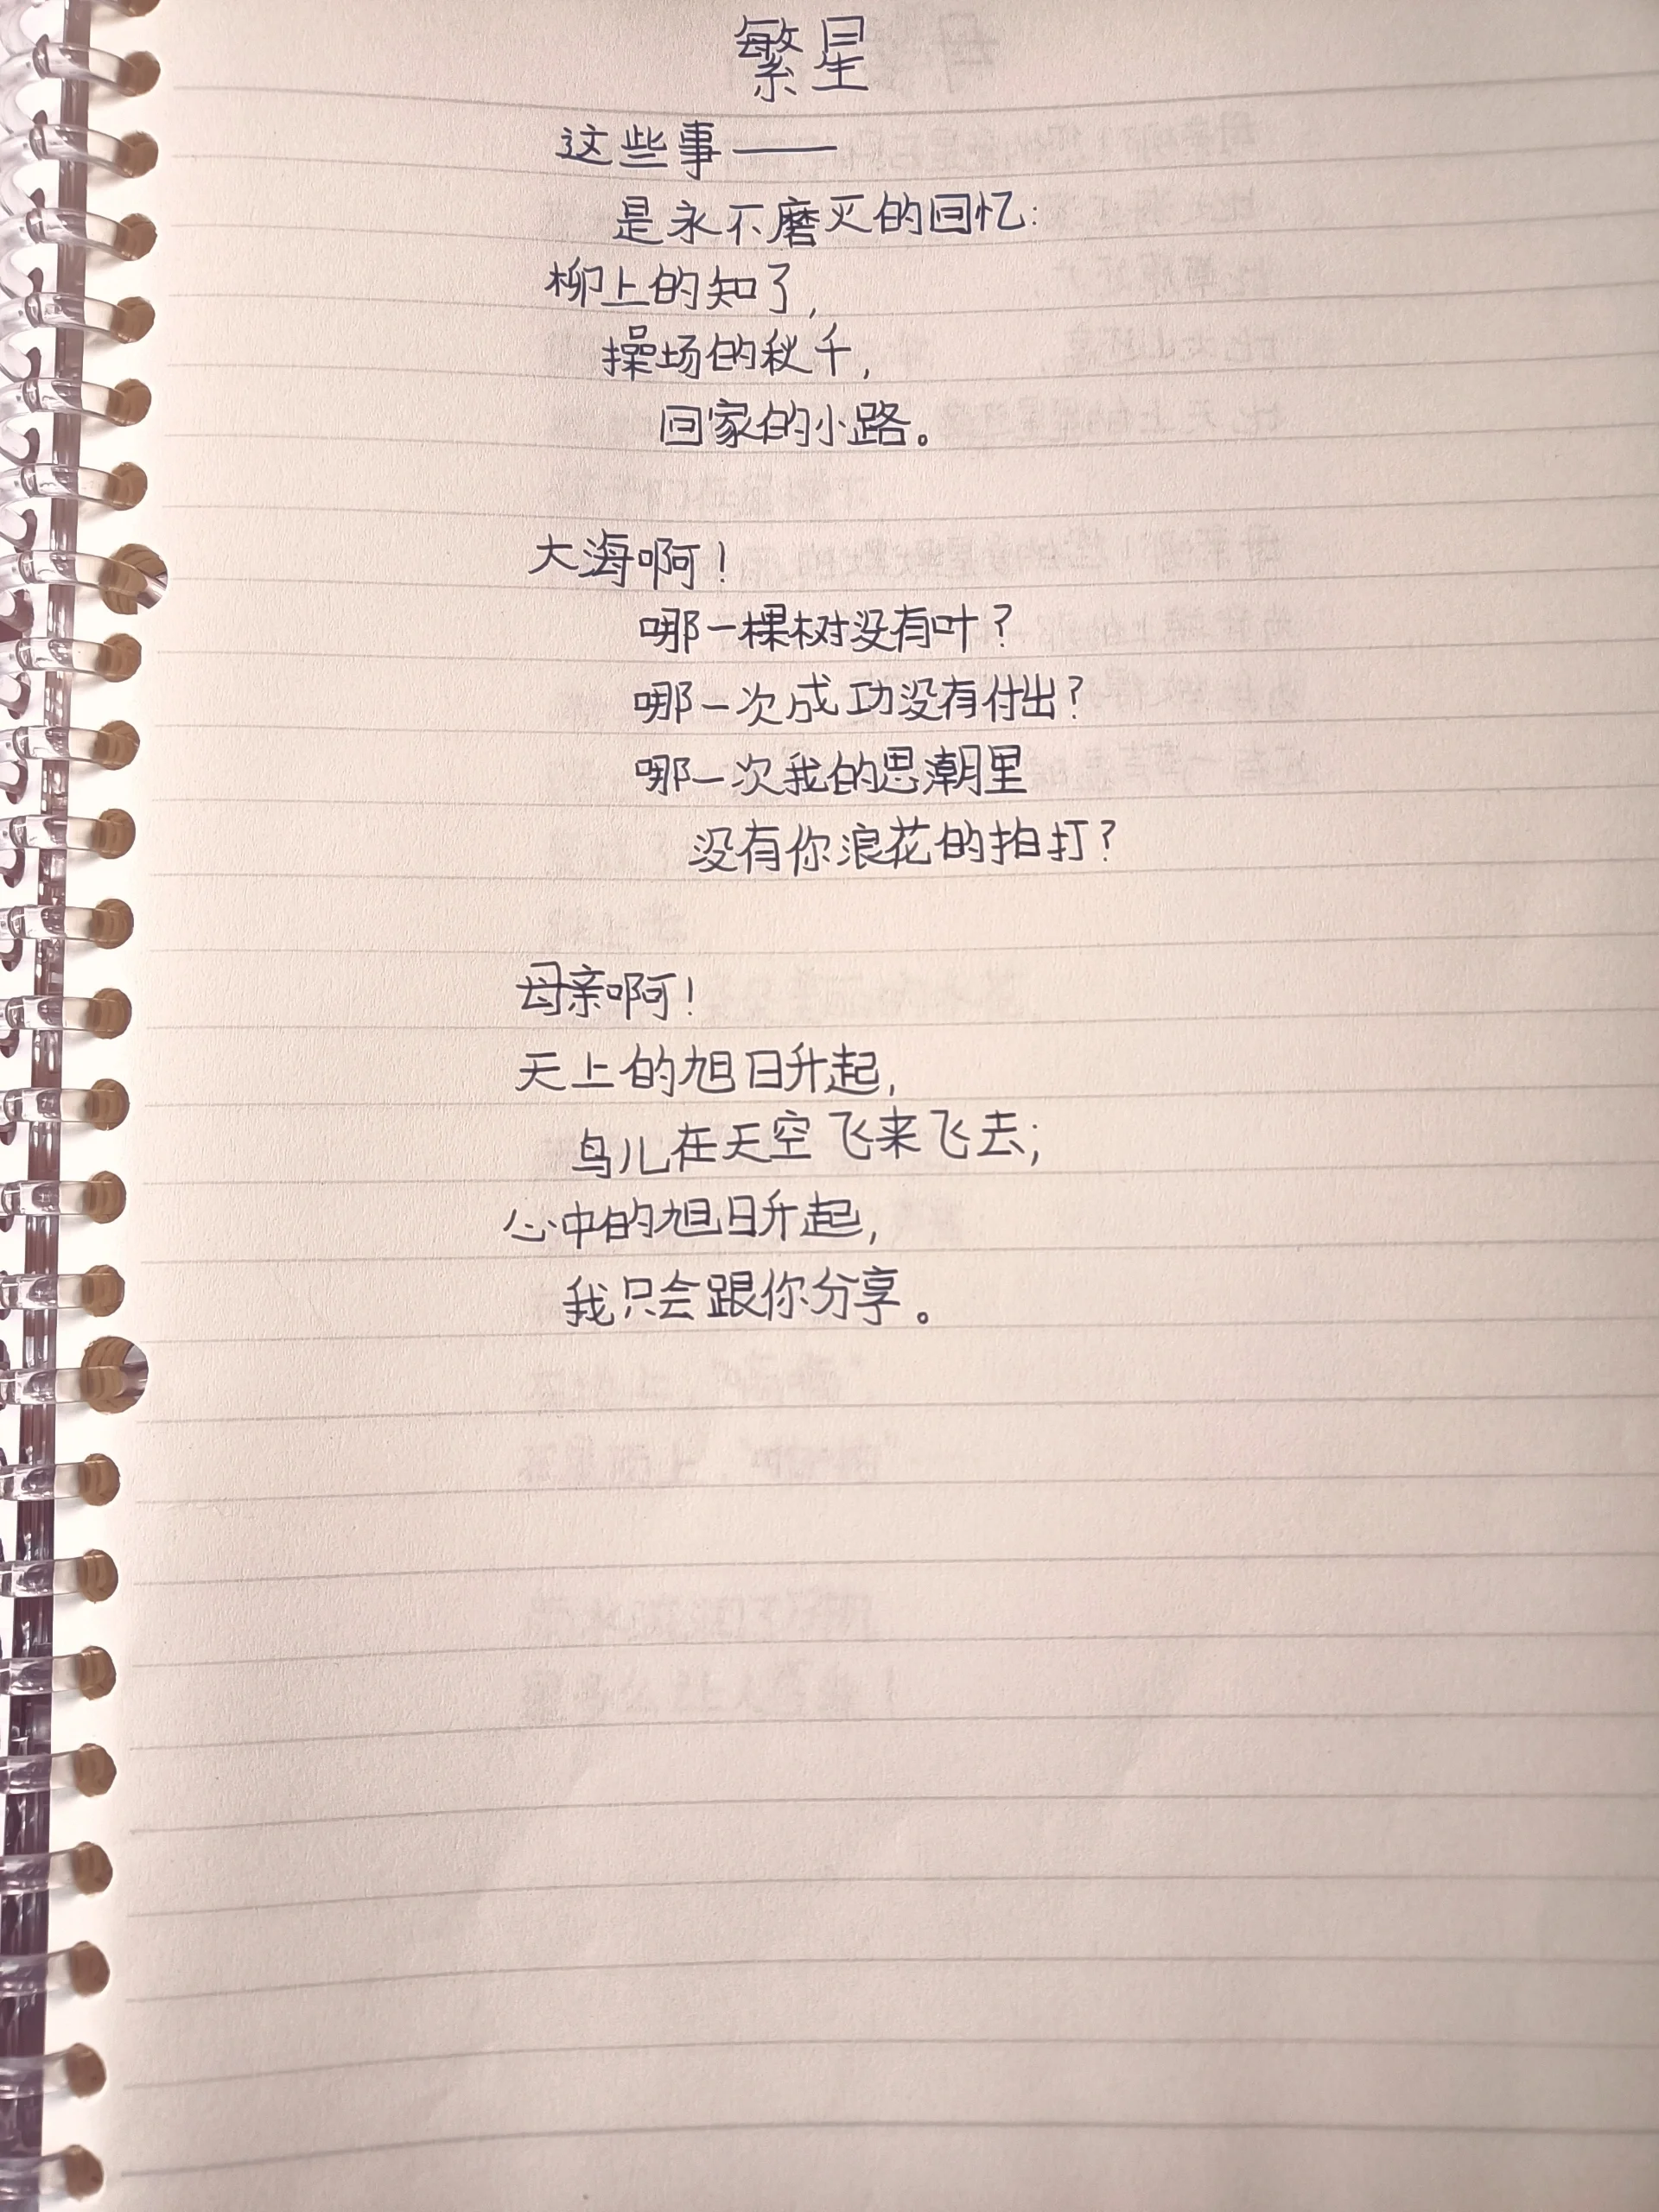 繁星
这些事——
是永不磨灭的回忆:
柳上的知了,
操场的秋千,
回家的小路。
大海啊!
哪一棵树没有叶?
哪一次成功没有付出?
哪一次我的思潮里
没有你浪花的拍打?
母亲啊!
天上的旭日升起,
鸟儿在天空飞来飞去;
心中的旭日升起,
我只会跟你分享。